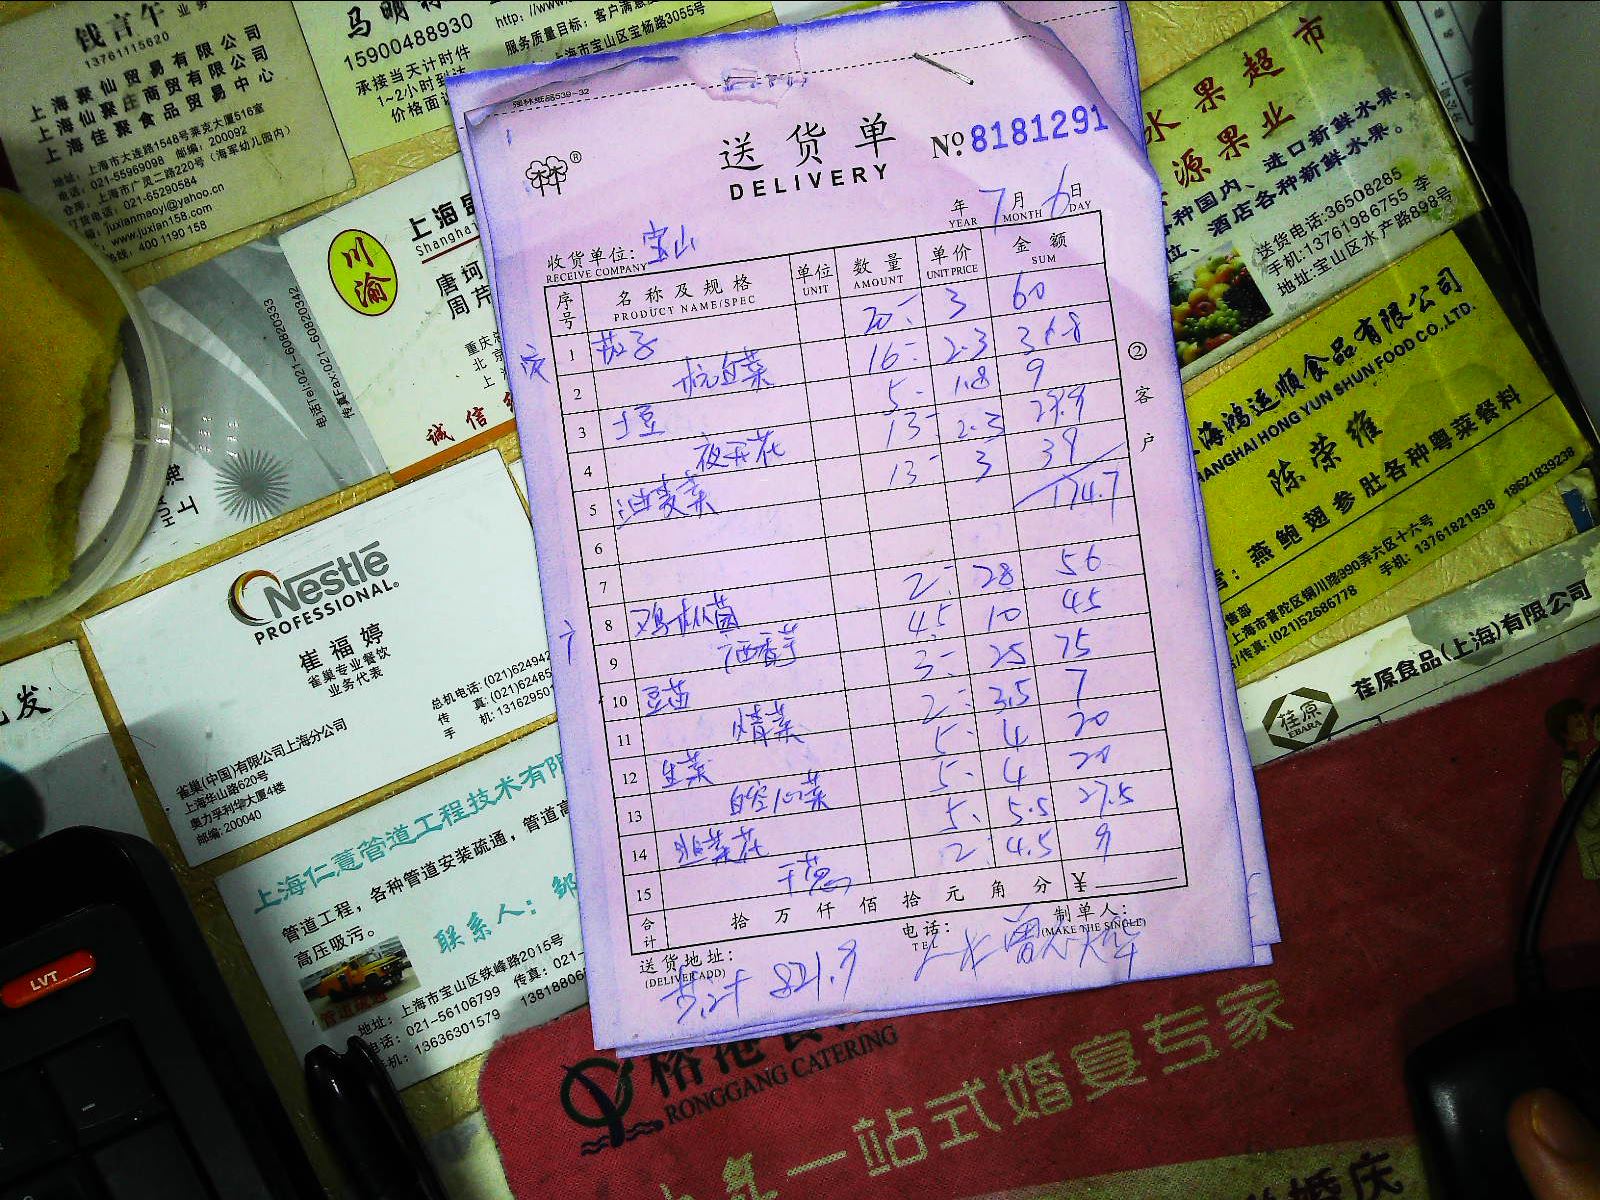 钱言午 业务
13761115620
上海聚仙贸易有限公司
上海仙聚庄商贸有限公司
上海佳聚食品贸易中心
地址:上海市大连路1548号莱克大厦516室
电话:021-55969098 邮编:200092
仓库:上海市广灵二路220号(海军幼儿园内)
订货电话:021-65290584
juxianmaoyi@yahoo.cn
www.juxian158.com
400 1190 158
15900488930
承接当天计时件
1~2小时到达
价格面议
http://www.
服务质量目标:客户满意
上海市宝山区宝杨路3055号
川渝
上海
Shangha
唐珂
周芹
诚信
电话Tel:021-60820342
传真Fax:021-60820333
Nestlé
PROFESSIONAL®
崔福婷
雀巢专业餐饮
业务代表
总机电话:(021)62494
传 真:(021)62485
手 机:13162950
雀巢(中国)有限公司上海分公司
上海华山路620号
奥力孚利华大厦4楼
邮编:200040
上海仁薏管道工程技术有限
管道工程,各种管道安装疏通,管道高
高压吸污。
联系人:邹
地址:上海市宝山区铁峰路2015号
电话:021-56106799 传真:021-
手机:13636301579 13818806
LVT
送货单
DELIVERY
No 8181291
年 YEAR 7月 MONTH 6日 DAY
收货单位: 宝山
RECEIVE COMPANY
序号 名称及规格 单位 数量 单价 金额
PRODUCT NAME/SPEC UNIT AMOUNT UNIT PRICE SUM
1 茄子 20 3 60
2 杭白菜 16 2.3 36.8
3 土豆 5 1.8 9
4 夜开花 13 2.3 29.9
5 油麦菜 13 3 39
6 174.7
7
8 鸡枞菌 2 28 56
9 4.5 10 45
10 豆苗 3 25 75
11 2 3.5 7
12 生菜 5 4 20
13 空心菜 5 4 20
14 韭菜花 5 5.5 27.5
15 干葱 2 4.5 9
合计 拾 万 仟 佰 拾 元 角 分 ¥
送货地址:
(DELIVER ADD)
电话:
TEL
制单人:
(MAKE THE SINGLE)
共计 821.9
②客户
水果超市
源果业
种国内、进口新鲜水果,
位、酒店各种新鲜水果。
送货电话:36508285
手机:13761986755 李
地址:宝山区水产路898号
海鸿运顺食品有限公司
HANGHAI HONG YUN SHUN FOOD CO.,LTD.
陈荣维
营:燕鲍翅参肚各种粤菜餐料
上海市普陀区铜川路990弄六区十六号
传真:(021)52686778
手机:13761821938 18621839238
荏原
EBARA
荏原食品(上海)有限公司
RONGGANG CATERING
一站式婚宴专家
婚庆